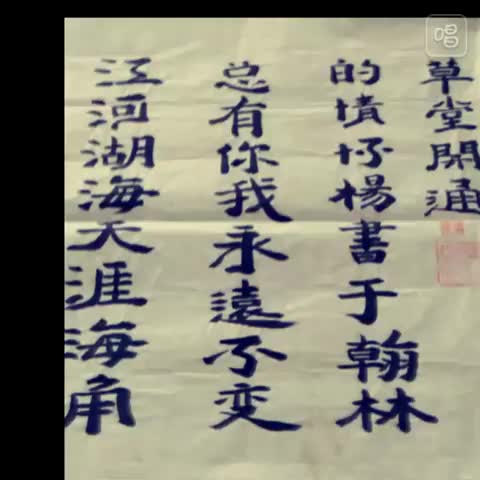 江河湖海天涯海角
总有你我永遠不变
的情怀楊書于翰林
草堂開通
唱